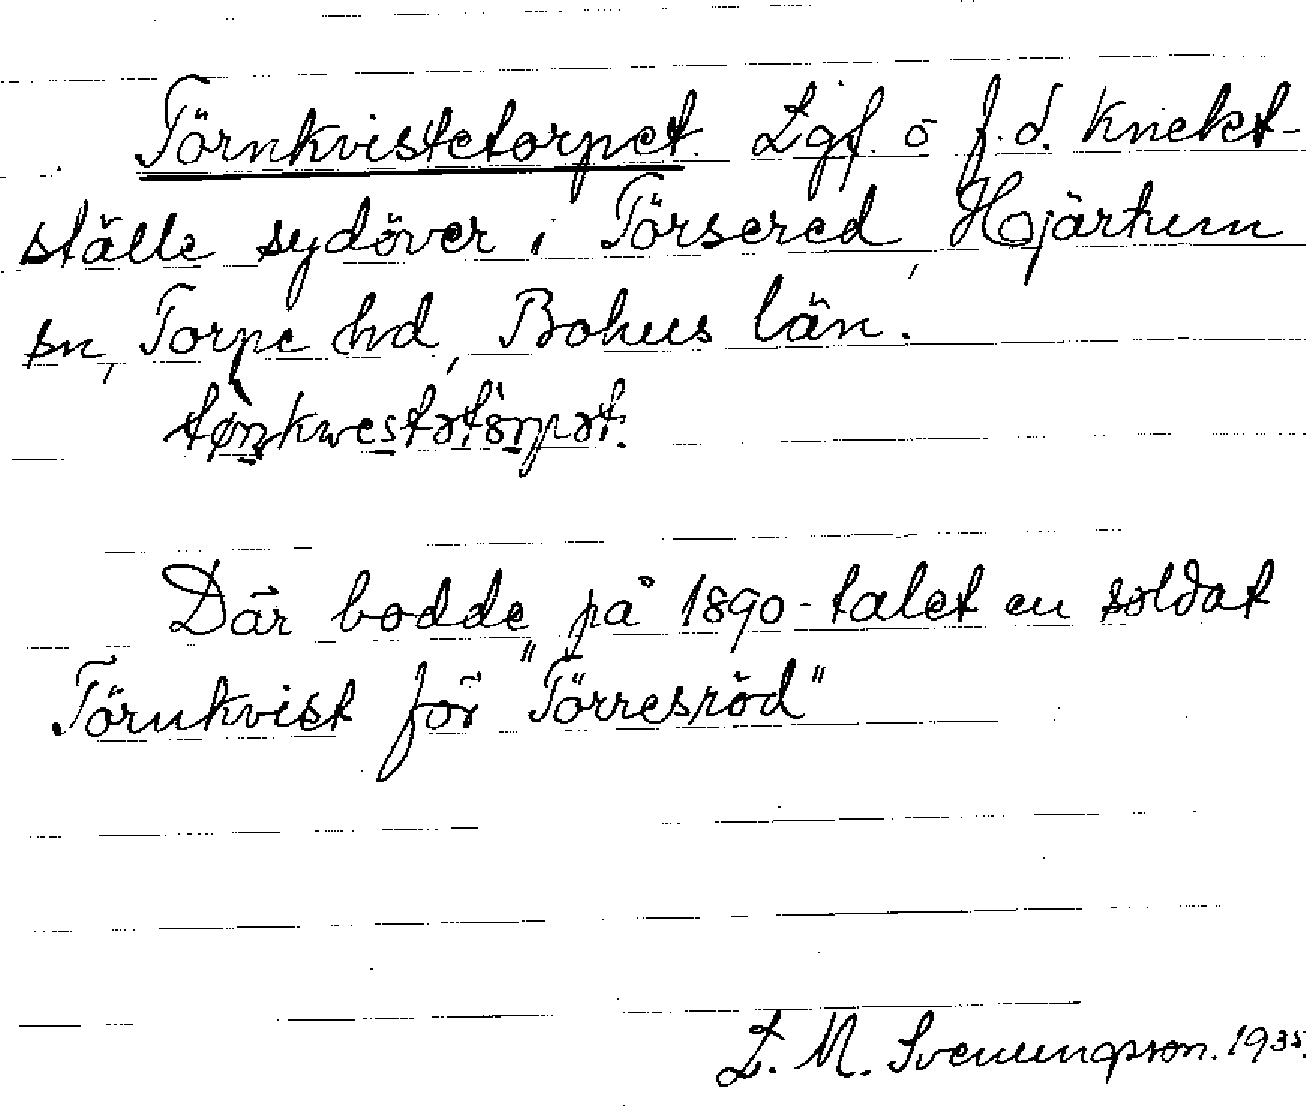 Törnkvistetorpet. Lgf. o f.d. knekt-
ställe sydöver i Törsered, Hjärtum
sn, Torpe hd, Bohus län.
Där bodde på 1890-talet en soldat
Törnkvist för "Törresröd"
L. M. Svenungsson. 1935.